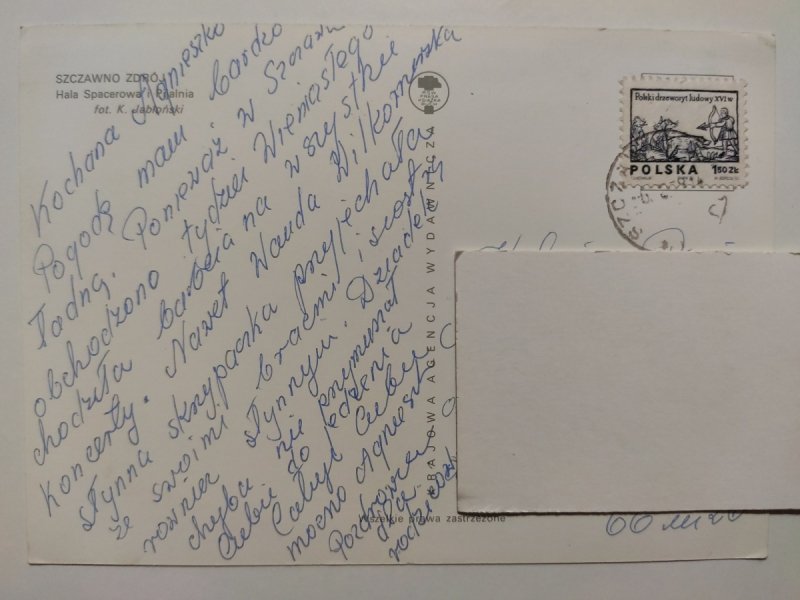 SZCZAWNO ZDRÓJ
Hala Spacerowa i Pijalnia
fot. K. Jabłoński
Kochana Agnieszko
Pogodę mam bardzo
ładną. Ponieważ w Szczawnie
obchodzono tydzień Wieniawskiego
chodziła babcia na wszystkie
koncerty. Nawet Wanda Wiłkomirska
słynna skrzypaczka przyjechała
ze swoimi braćmi i siostrą
również słynnym. Dziadek
chyba nie przymuszał
Ciebie do jedzenia
Całuję Ciebie
mocno Agnieszko
Pozdrowienia
dla
rodziców
KRAJOWA AGENCJA WYDAWNICZA
Wszelkie prawa zastrzeżone
Polski drzeworyt ludowy XVI w
POLSKA 1,50 ZŁ